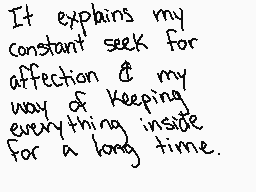 It explains my
constant seek for
affection & my
way of keeping
everything inside
for a long time.